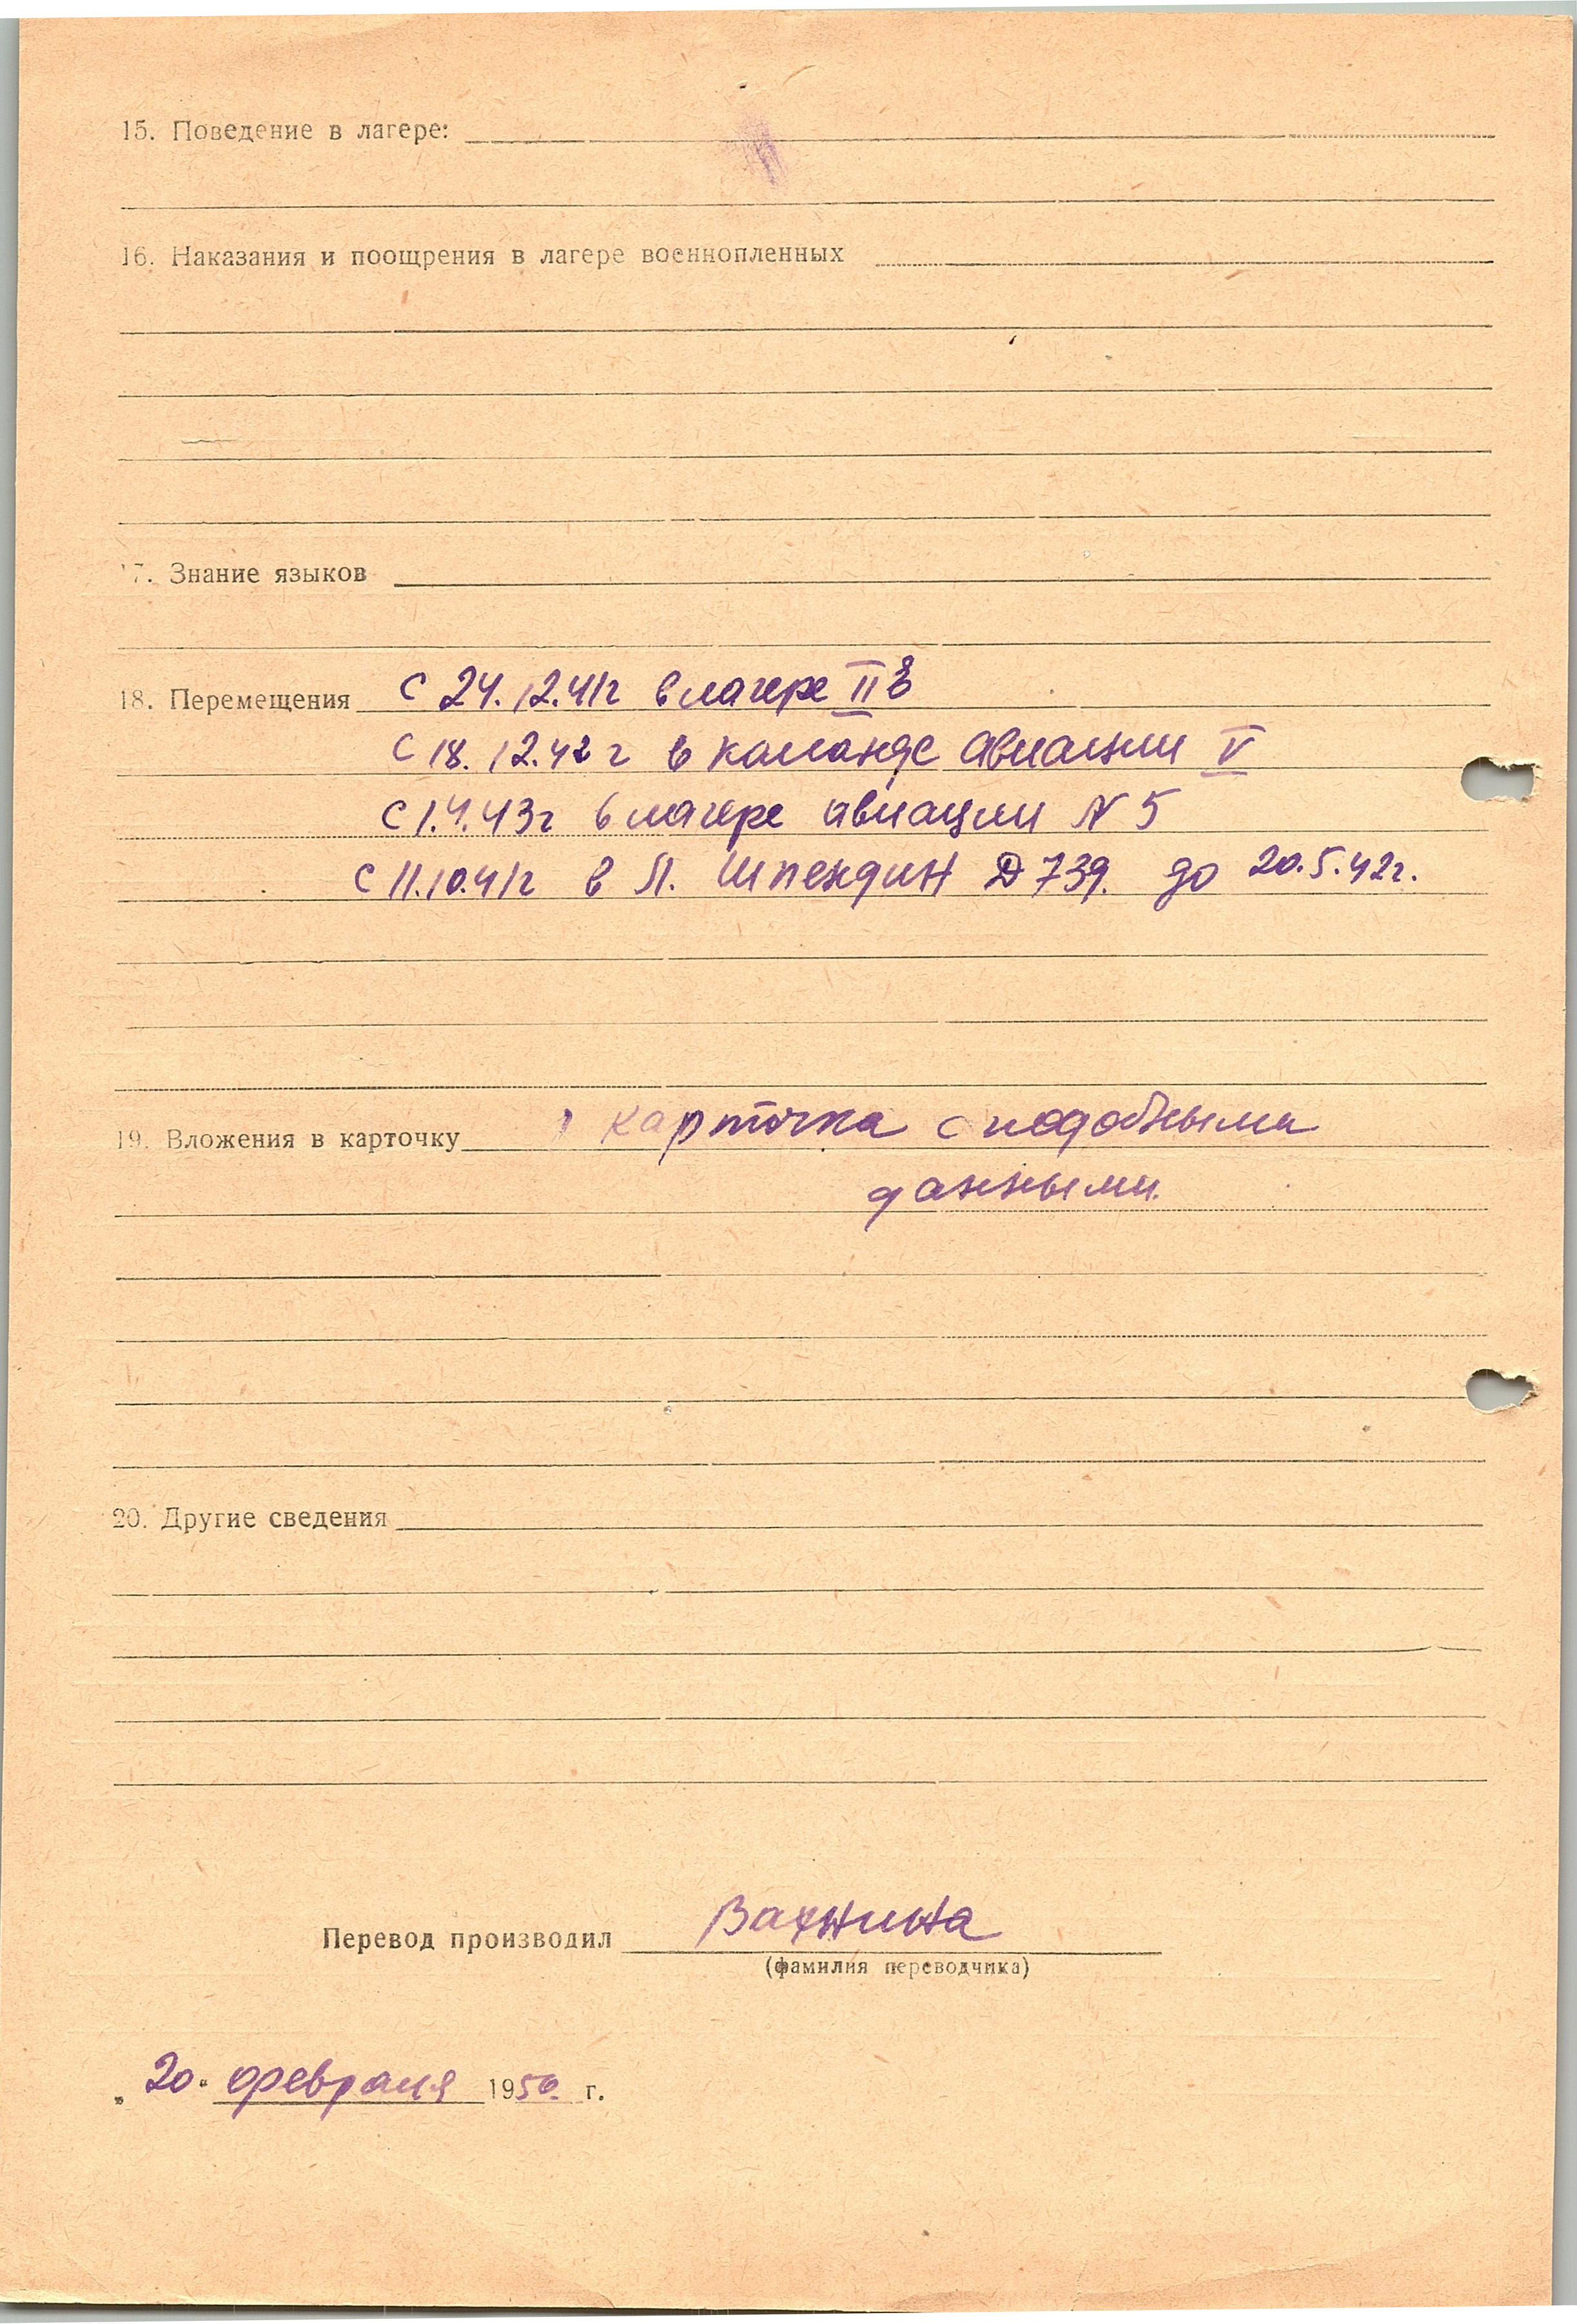 15. Поведение в лагере:
16. Наказания и поощрения в лагере военнопленных
17. Знание языков
18. Перемещения с 24.12.41г в лагере II
с 18.12.42 г в команде авиации V
с 1.4.43г в лагере авиации N 5
с 11.10.41г в л. Шпендин Д 739. до 20.5.42г.
19. Вложения в карточку 1 карточка с подобными
данными.
20. Другие сведения
Перевод производил Вахнина
(фамилия переводчика)
„20“ февраля 1950 г.